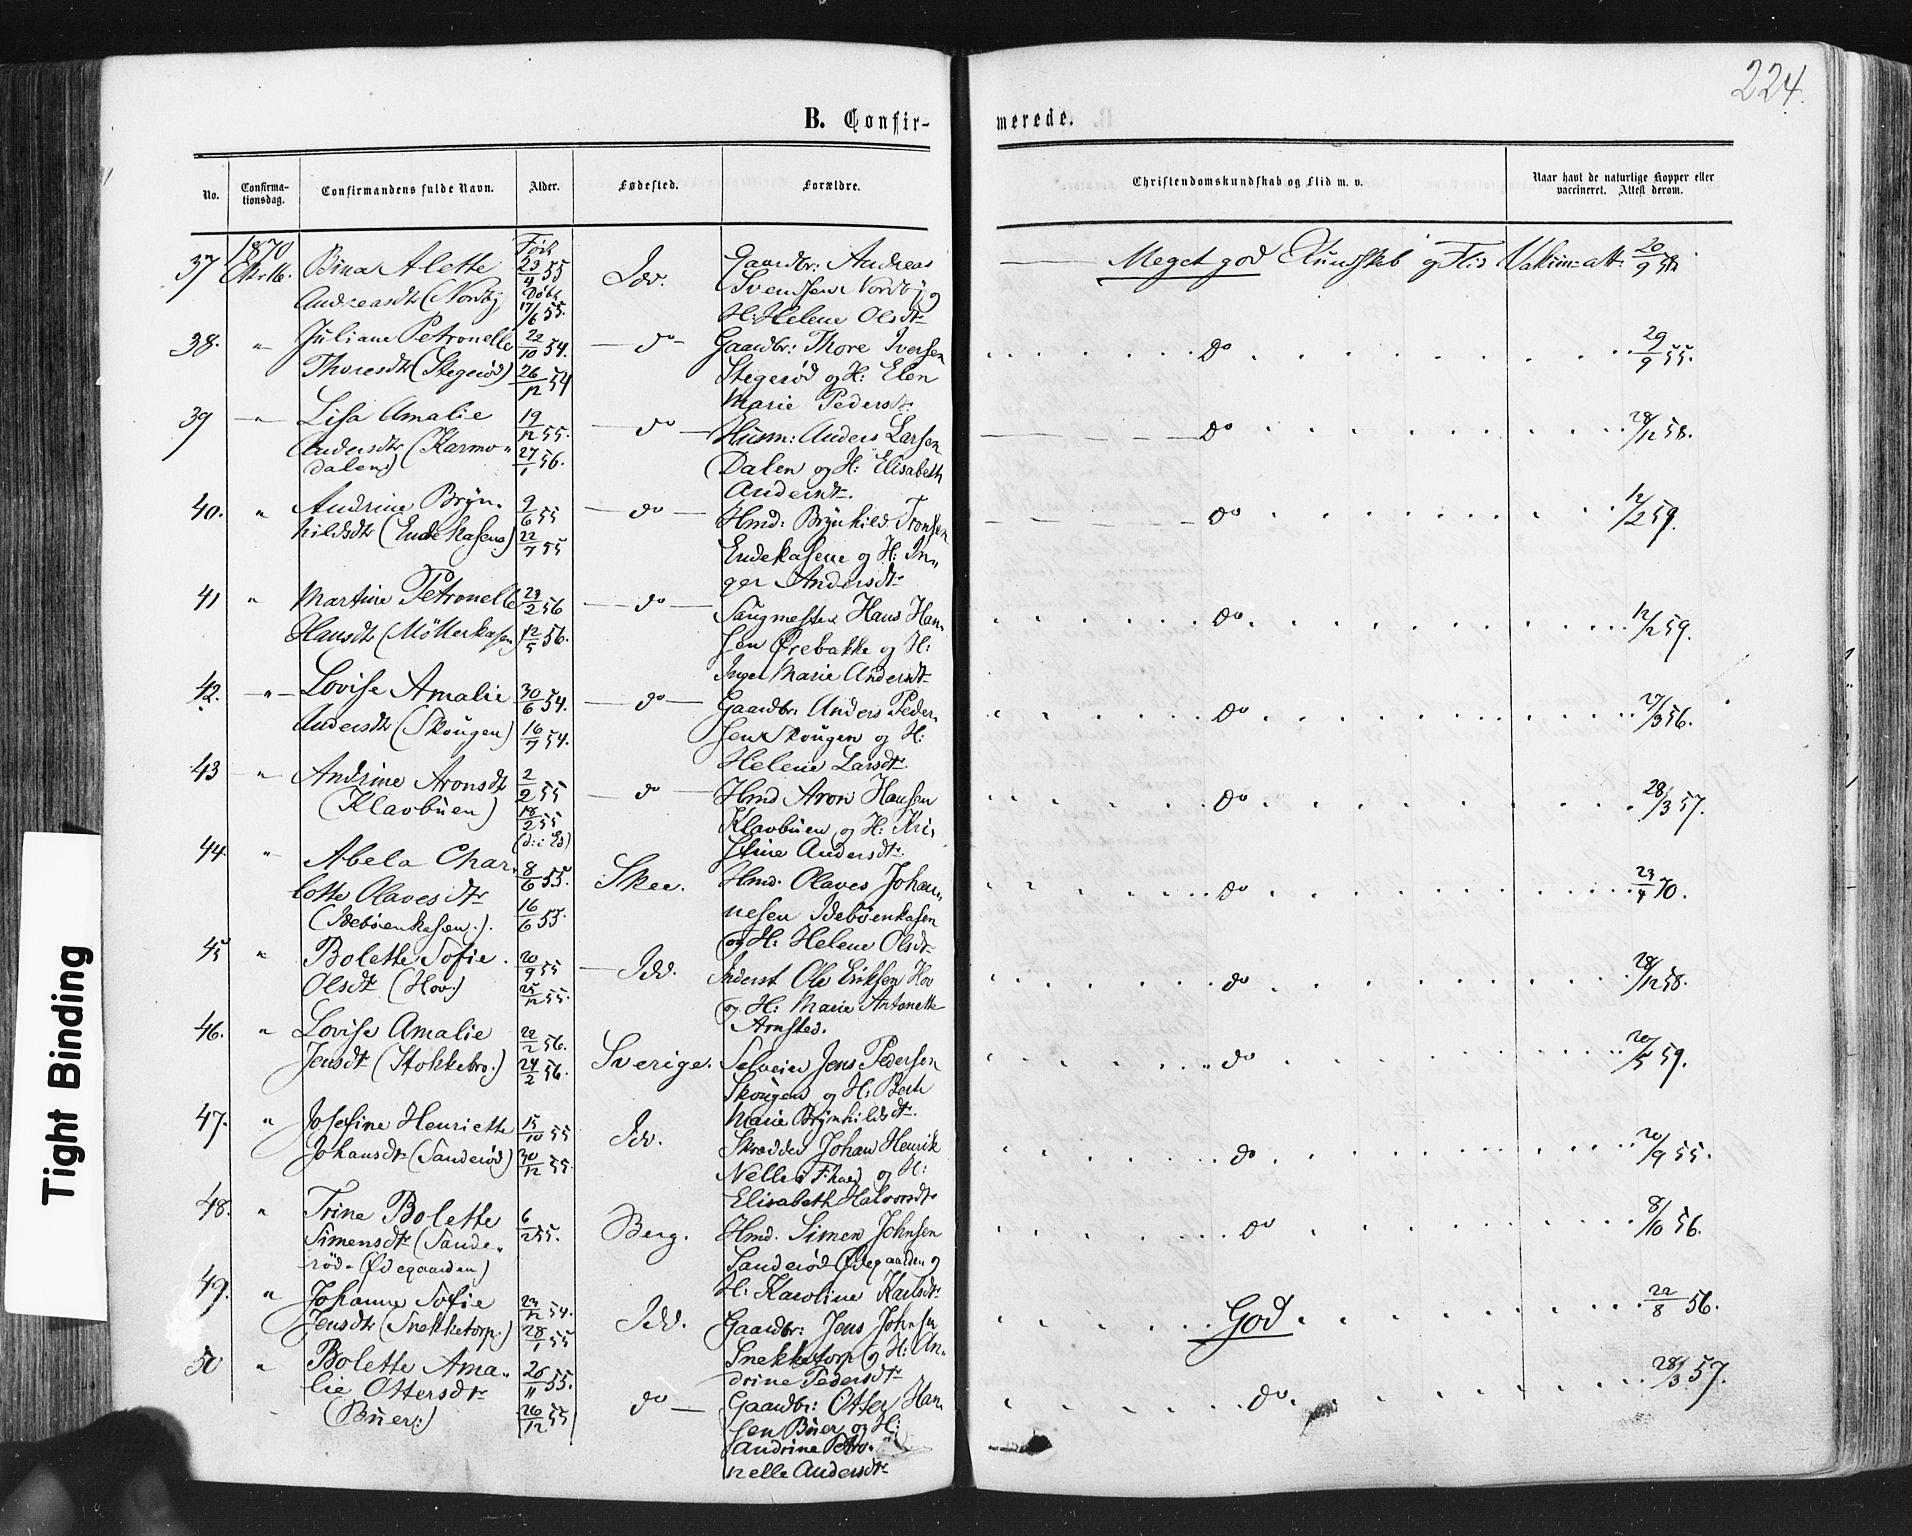 224.
B. Confir-
merede.
No.
Confirma-
tionsdag.
Confirmandens fulde Navn.
Alder.
Fødested.
Forældre.
Christendomskundskab og Flid m. v.
Naar havt de naturlige Kopper eller
vaccineret. Attest derom.
1870
37 Bina Alette
Andreasdtr (Nordby
Født
23/4 55
Døbt
17/6 55.
Idd.
Gaardbr: Andreas
Svendsen Nordby og
H: Helene Olsdtr
Meget god Kundskab og Flid
Vakcin=att: 20/9 58
38. " Juliane Petronelle
Thoresdtr (Stegerød)
22/10 54.
26/12 54
— do —
Gaardbr: Thore Iversen
Stegerød og H: Elen
Marie Pedersdtr
Do
29/9 55.
39 — " Lisa Amalie
Andersdtr (Karmo"
dalen)
19/12 55.
27/1 56.
— do —
Husm: Anders Larsen
Dalen og H: Elisabeth
Andersdtr.
Do
28/12 58.
40. " Andrine Bryn-
hildsdtr (Endekasene)
9/6 55
22/7 55
— do —
Hmd: Brynhild Tronsen
Endekasene og H: In"
ger Andersdtr
Do
12/2 59.
41 " Martine Petronelle
Hansdtr (Möllerkasen)
29/2 56
12/5 56.
— do —
Saugmester Hans Han-
sen Ørebakke og H:
Inger Marie Andersdtr
Do
12/2 59.
42. — " — Lovise Amalie
Andersdtr (Skougen)
30/6 54.
16/7 54.
— do —
Gaardbr: Anders Peder-
sen Skougen og H:
Helene Larsdtr.
Do
27/3 56.
43 — " Andrine Aronsdtr
(Klavbuen)
2/2 55
18/2 55
— do —
Hmd Aron Hansen
Klavbuen og H: Kri-
stine Andersdtr.
Do
28/3 57.
44. " Abela Char-
lotte Olavesdtr
(Idebøenkasen.).
8/6 55.
16/6 55.
Skee.
Hmd. Olaves Johan-
nesen Idebøenkasen
og H: Helene Olsdtr
Do
23/4 70.
45 " Bolette Sofie
Olsdtr (Hov.)
20/9 55
25/12 55.
— Idd.
Inderst Ole Eriksen Hov
og H: Marie Antonette
Arnsted.
do
28/12 58.
46. " Lovise Amalie
Jensdtr (Stokkebro.)
22/2 56.
24/2 56.
Sverige.
Selveier Jens Pedersen
Skougen og H: Berte
Marie Brynhildsdtr.
do
20/5 59.
47. " Josefine Henriette
Johansdtr (Sanderød)
15/10 55
30/12 55.
Idd.
Skrædder Johan Henrik
og H:
Elisabeth Halvorsdtr
do
20/9 55.
48. " Trine Bolette
Simensdtr (Sande-
rød-Ødegaarden)
6/2 55.
Berg.
Hmd. Simen Johnsen
Sanderød Ødegaarden og
H: Karoline Karlsdtr
do
8/10 56.
49. " Johanne Sofie
Jensdtr (Snekketorp.)
23/12 54.
28/1 55
Idd.
Gaardbr: Jens Johnsen
Snekketorp og H: An-
drine Pedersdtr
God
22/8 56.
50 " Bolette Ama-
lie Ottersdtr
(Buer:)
20/11 55.
26/12 55
do —
Gaardbr: Otter Han-
sen Buer og H:
Andrine Petro-
nelle Andersdtr
do
28/3 57.
Tight Binding